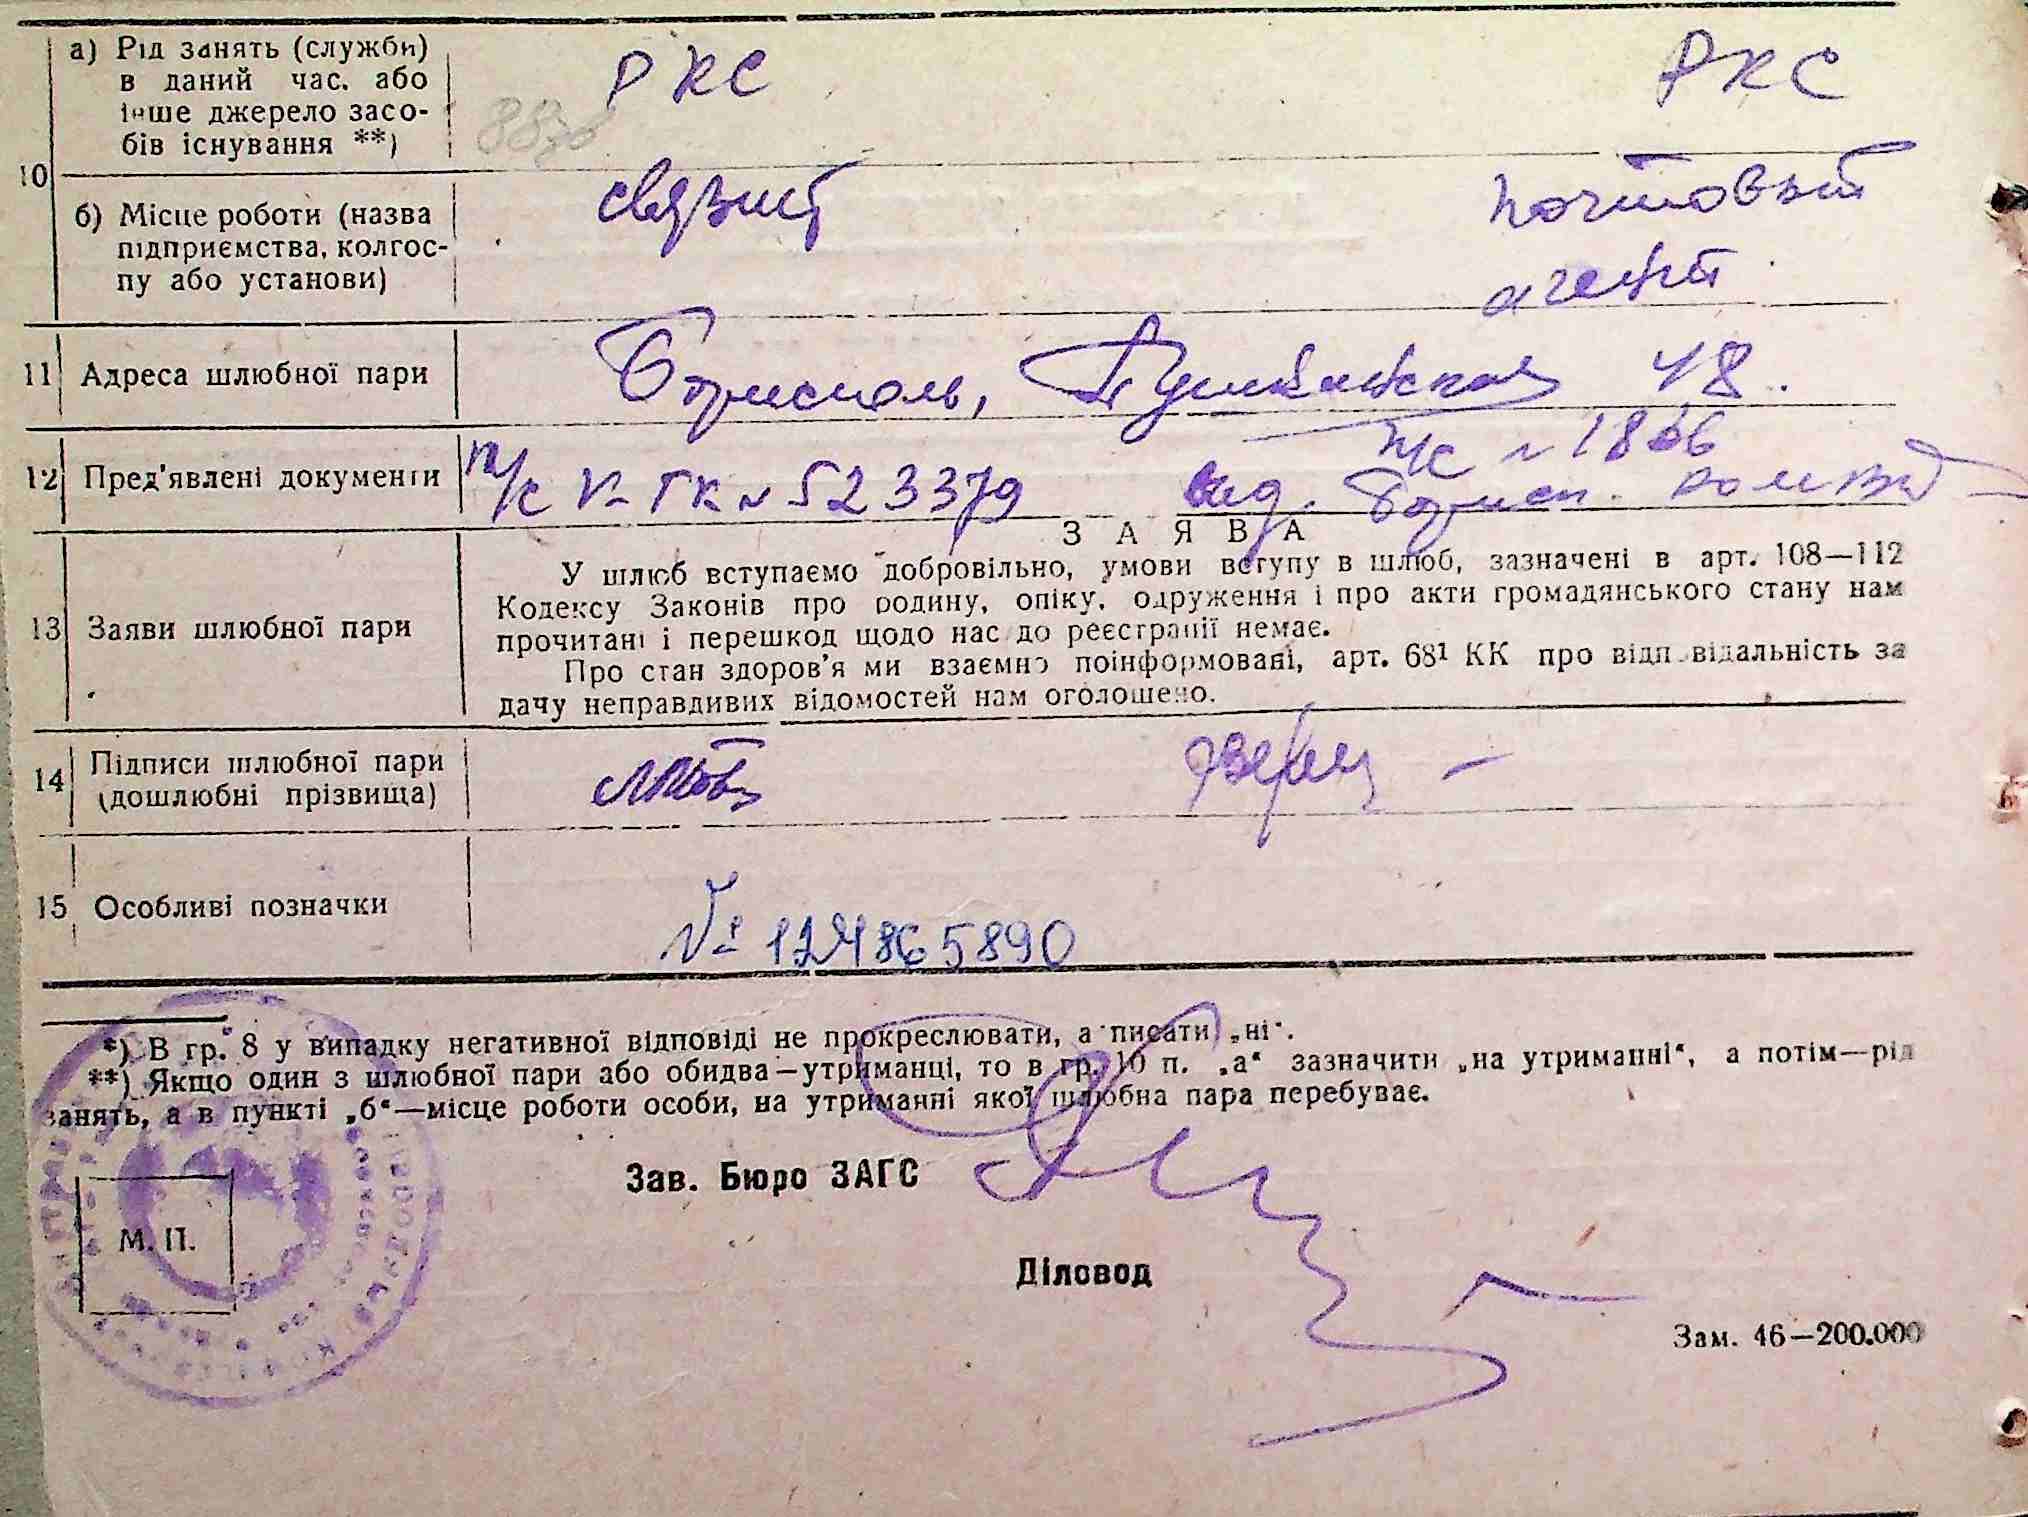 10
а) Рід занять (служби)
в даний час. або
інше джерело засо-
бів існування **)
РКС
РКС
б) Місце роботи (назва
підприємства, колгос-
пу або установи)
связист
почтовый
агент
11 Адреса шлюбної пари
Борисполь, Пушкинская 48.
12 Пред'явлені документи
п/с V-ГК № 523379
п/с № 1866
вид. Борисп.
13 Заяви шлюбної пари
ЗАЯВА
У шлюб вступаємо добровільно, умови вступу в шлюб, зазначені в арт. 108—112
Кодексу Законів про родину, опіку, одруження і про акти громадянського стану нам
прочитані і перешкод щодо нас до реєстрації немає.
Про стан здоров'я ми взаємно поінформовані, арт. 68¹ КК про відповідальність за
дачу неправдивих відомостей нам оголошено.
14 Підписи шлюбної пари
(дошлюбні прізвища)
15 Особливі позначки
№ 124865890
*) В гр. 8 у випадку негативної відповіді не прокреслювати, а писати „ні".
**) Якщо один з шлюбної пари або обидва—утриманці, то в гр. 10 п. „а" зазначити „на утриманні", а потім—рід
занять, а в пункті „б"—місце роботи особи, на утриманні якої шлюбна пара перебуває.
Зав. Бюро ЗАГС
М. П.
Діловод
Зам. 46—200.000